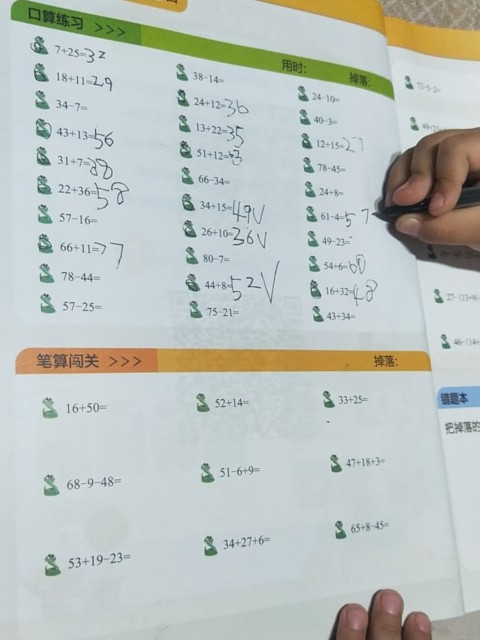 口算练习 >>>
用时：
掉落：
7+25=32
18+11=29
34-7=
43+13=56
31+7=38
22+36=58
57-16=
66+11=77
78-44=
57-25=
38-14=
24+12=36
13+22=35
51+12=
66-34=
34+15=49√
26+10=36√
80-7=
44+8=52√
75-21=
24-10=
40-3=
12+15=27
78-45=
24+8=
61-4=57
49-23=
54+6=60
16+32=48
43+34=
笔算闯关 >>>
掉落：
16+50=
52+14=
33+25=
68-9-48=
51-6+9=
47+18+3=
53+19-23=
34+27+6=
65+8-45=
错题本
把掉落的